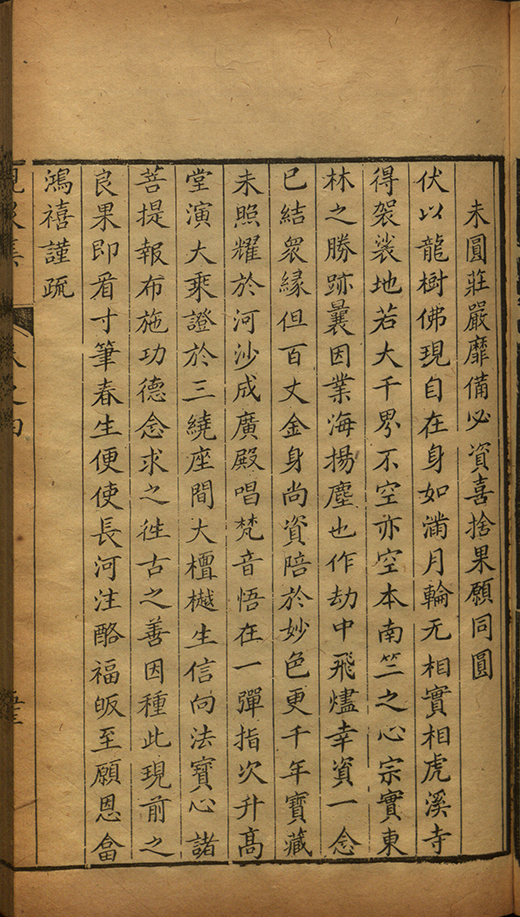 未圓莊嚴靡備必資喜捨果願同圓
伏以龍樹佛現自在身如滿月輪无相實相虎溪寺
得袈裟地若大千界不空亦空本南竺之心宗實東
林之勝跡曩因業海揚塵也作劫中飛燼幸資一念
已結衆緣但百丈金身尚資陪於妙色更千年寶藏
未照耀於河沙成廣殿唱梵音悟在一彈指次升髙
堂演大乘證於三繞座間大檀樾生信向法寶心諸
菩提報布施功德念求之徃古之善因種此現前之
良果即看寸筆春生便使長河注酪福皈至願恩畣
鴻禧謹疏
卷之四